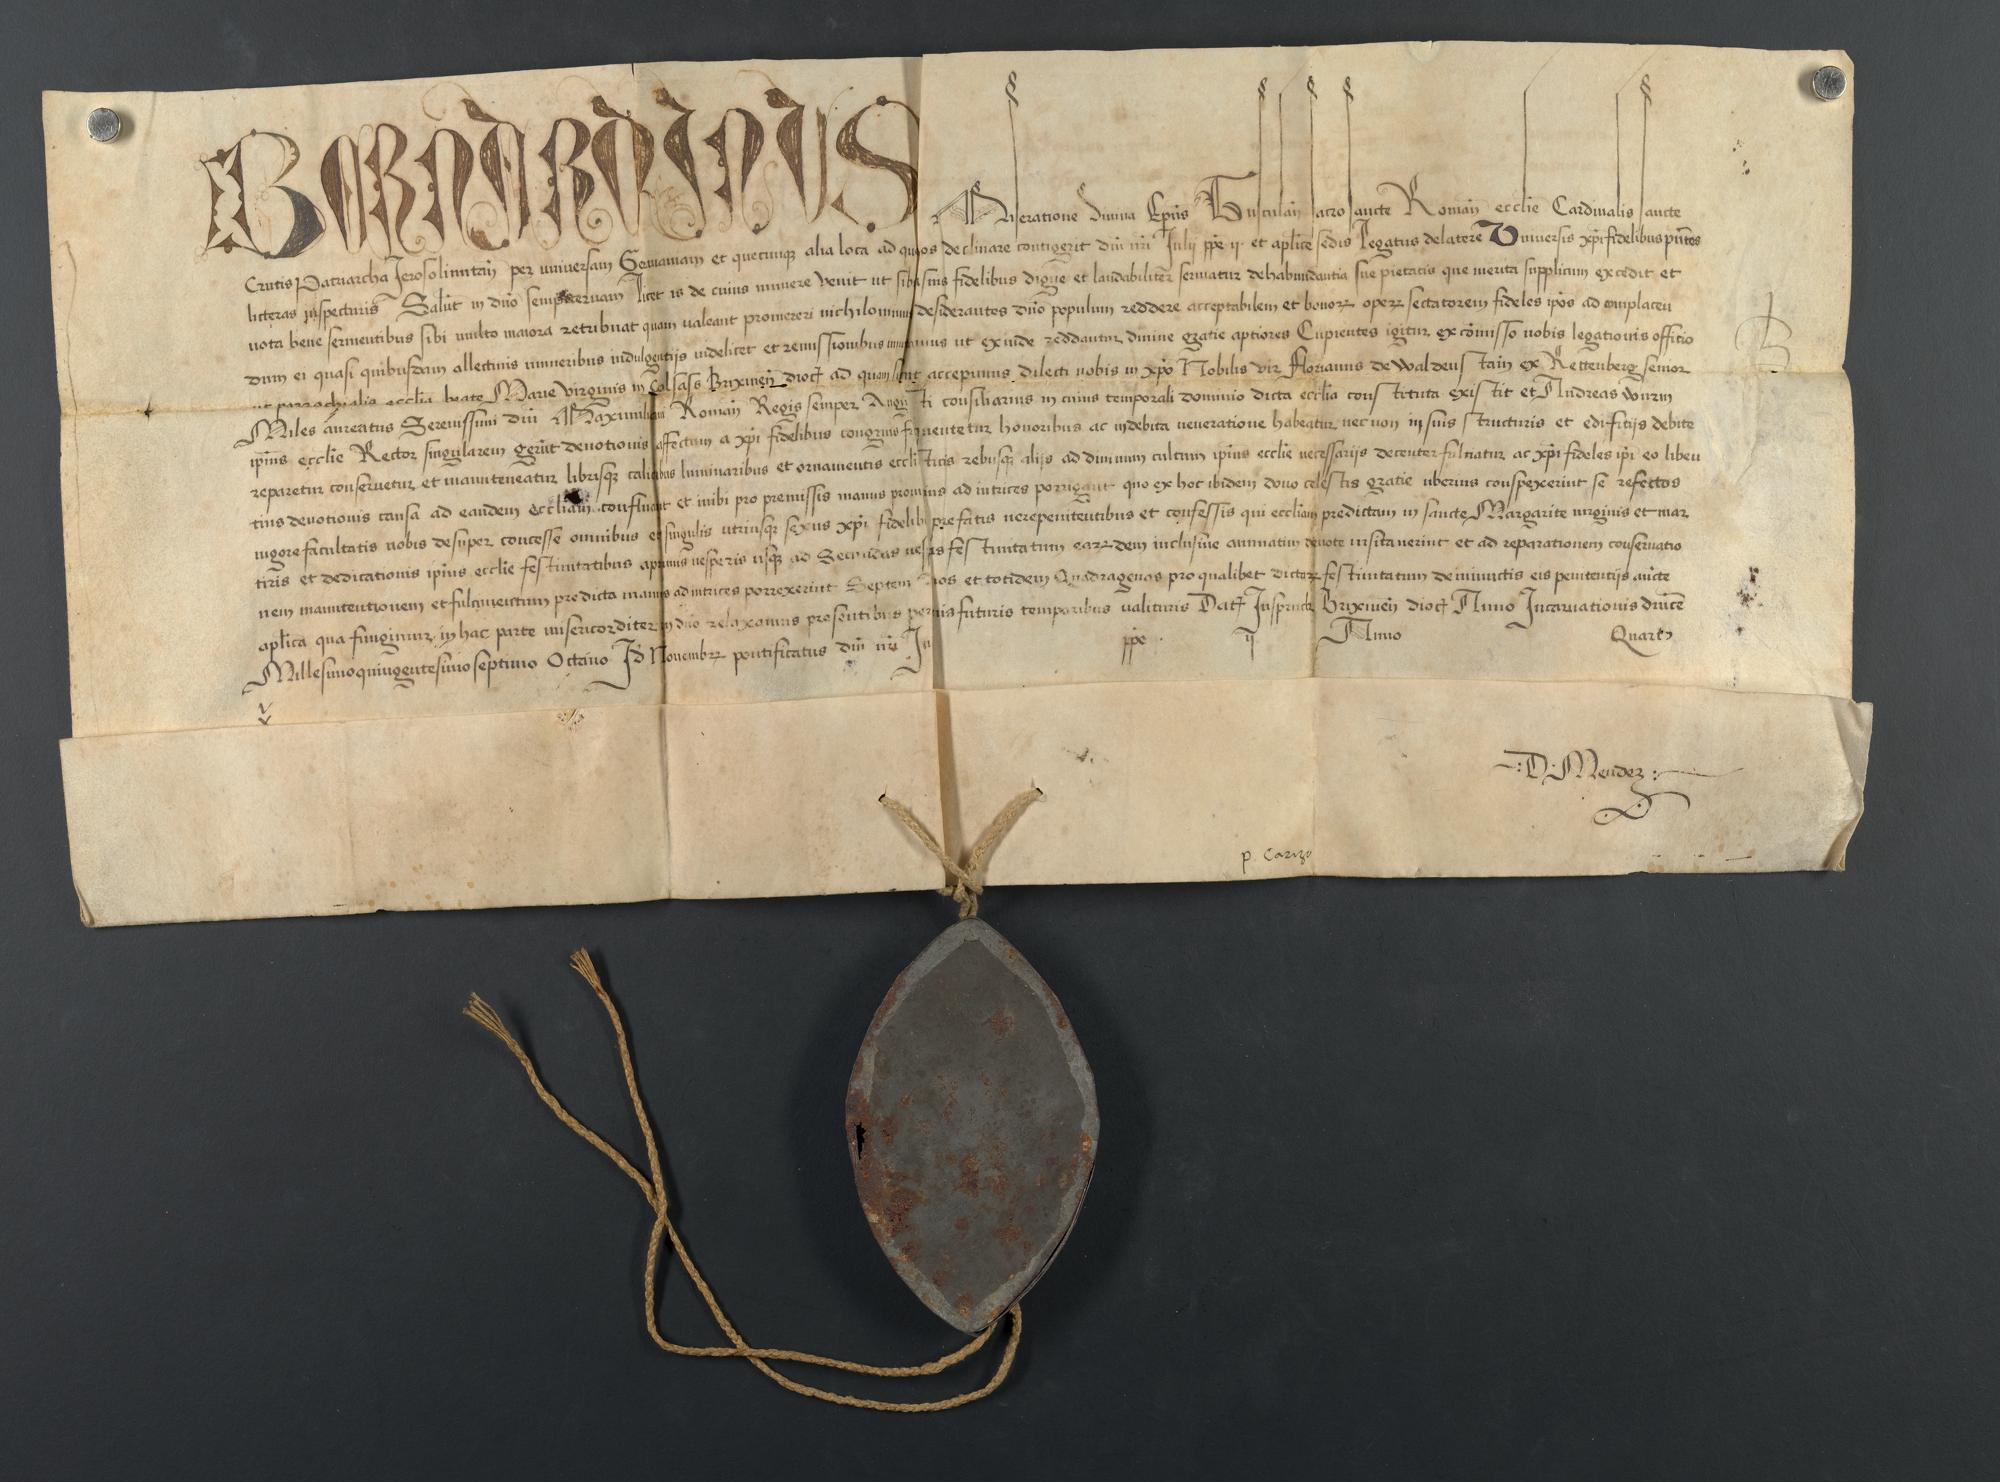 BERNARDINUS Miseratione divina Epūs Tusculan̄ sacro sancte Roman̄ ecclīe Cardinalis sancte
Crucis Patriarcha Jerosolimitan̄ per universam Germaniam et quecunq₃ alia loca ad que nos declinare contigerit dn̄i nr̄i Julij pp̄e ij et aplīce sedis Legatus delatere Universis xp̄ifidelibus pn̄tes
licteras inspecturis Salūt in dn̄o sempiternam Licet is de cuius munere venit ut sibi a suis fidelibus digne et laudabiliter serviatur de habundantia sue pietatis que merita supplicum excedit et
vota bene servientibus sibi multo maiora retribuat quam valeant promereri nichilominus desiderantes dn̄o populum reddere acceptabilem et bonoꝝ operꝝ sectatorem fideles ip̄os ad complacen
dum ei quasi quibusdam allectivis muneribus indulgentijs videlicet et remissionibus invitamus ut exinde reddantur divine gratie aptiores Cupientes igitur ex cōmisso nobis legationis officio
ut parrochialis ecclīa beate Marie Virginis in Colsass Brixinen̄ dioc̄ ad quam sicut accepimus dilecti nobis in xp̄o Nobilis vir Florianus de Waldenstain ex Rettenberg senior
Miles aureatus Serenissimi dn̄i Maximiliani Roman̄ Regis semper Augusti consiliarius in cuius temporali dominio dicta ecclīa constituta existit et Andreas Wurm
ip̄ius ecclīe Rector singularem gerūt devotionis affectum a xp̄i fidelibus congruis frequentetur honoribus ac in debita veneratione habeatur nec non in suis structuris et edifitijs debite
reparetur conservetur et manuteneatur librisq₃ calicibus luminaribus et ornamentis ecclīasticis rebusq₃ alijs ad divinum cultum ip̄ius ecclīe necessarijs decenter fulciatur ac xp̄i fideles ip̄i eo liben
tius devotionis causa ad eandem ecclīam confluant et inibi pro premissis manus promptius adiutrices porrigant quo ex hoc ibidem dono celestis gratie uberius conspexerint se refectos
vigore facultatis nobis desuper concesse omnibus et singulis utriusq₃ sexus xp̄i fidelibus prefatis vere penitentibus et confessis qui ecclīam predictam in sancte Margarite virginis et mar
tiris et dedicationis ip̄ius ecclīe festivitatibus a primis vesperis usq₃ ad Secundas vesperas festivitatum earꝝdem inclusive annuatim devote visitaverint et ad reparationem conservatio
nem manutentionem et fulcimentum predicta manus adiutrices porrexerint Septem annos et totidem Quadragenas pro qualibet dictaꝝ festivitatum de iniunctis eis penitentijs aucte
aplīca qua fungimur in hac parte misericorditer in dn̄o relaxamus presentibus perpetuis futuris temporibus valituris Dat̄ Jnspruck Brixinen̄ dioc̄ Anno Jncarnationis dn̄ice
Millesimoquingentesimoseptimo Octavo Jd Novembꝝ pontificatus dn̄i nr̄i Ju pp̄e ij Anno Quarto
D: Mendez
p. Carizo